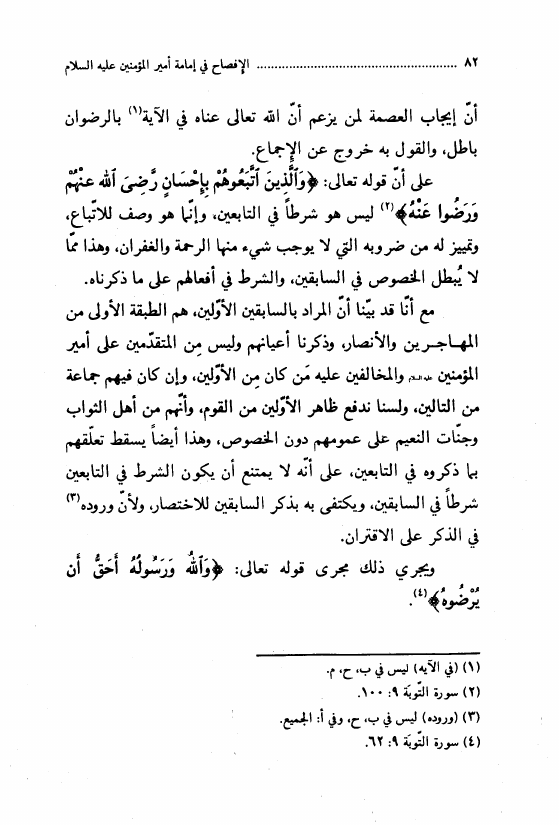 ٨٢ ........................................................ الإفصاح في إمامة أمير المؤمنين عليه السلام
أنّ إيجاب العصمة لمن يزعم أنّ الله تعالى عناه في الآية(١) بالرضوان
باطل، والقول به خروج عن الإجماع.
على أنّ قوله تعالى: ﴿وَٱلَّذِينَ ٱتَّبَعُوهُمْ بِإِحْسَانٍ رَّضِىَ ٱللهُ عَنْهُمْ
وَرَضُوا عَنْهُ﴾(٢) ليس هو شرطاً في التابعين، وإنّما هو وصف للاتّباع،
وتمييز له من ضروبه التي لا يوجب شيء منها الرحمة والغفران، وهذا ممّا
لا يُبطل الخصوص في السابقين، والشرط في أفعالهم على ما ذكرناه.
مع أنّا قد بيّنا أنّ المراد بالسابقين الأوّلين، هم الطبقة الأولى من
المهاجرين والأنصار، وذكرنا أعيانهم وليس مِن المتقدّمين على أمير
المؤمنين عليه السلام والمخالفين عليه مَن كان مِن الأوّلين، وإن كان فيهم جماعة
من التالين، ولسنا ندفع ظاهر الأوّلين من القوم، وأنّهم من أهل الثواب
وجنّات النعيم على عمومهم دون الخصوص، وهذا أيضاً يسقط تعلّقهم
بما ذكروه في التابعين، على أنّه لا يمتنع أن يكون الشرط في التابعين
شرطاً في السابقين، ويكتفى به بذكر السابقين للاختصار، ولأنّ وروده(٣)
في الذكر على الاقتران.
ويجري ذلك مجرى قوله تعالى: ﴿وَٱللهُ وَرَسُولُهُ أَحَقُّ أَن
يُرْضُوهُ﴾(٤).
(١) (في الآيه) ليس في ب، ح، م.
(٢) سورة التّوبَة ٩: ١٠٠.
(٣) (وروده) ليس في ب، ح، وفي أ: الجميع.
(٤) سورة التّوبَة ٩: ٦٢.